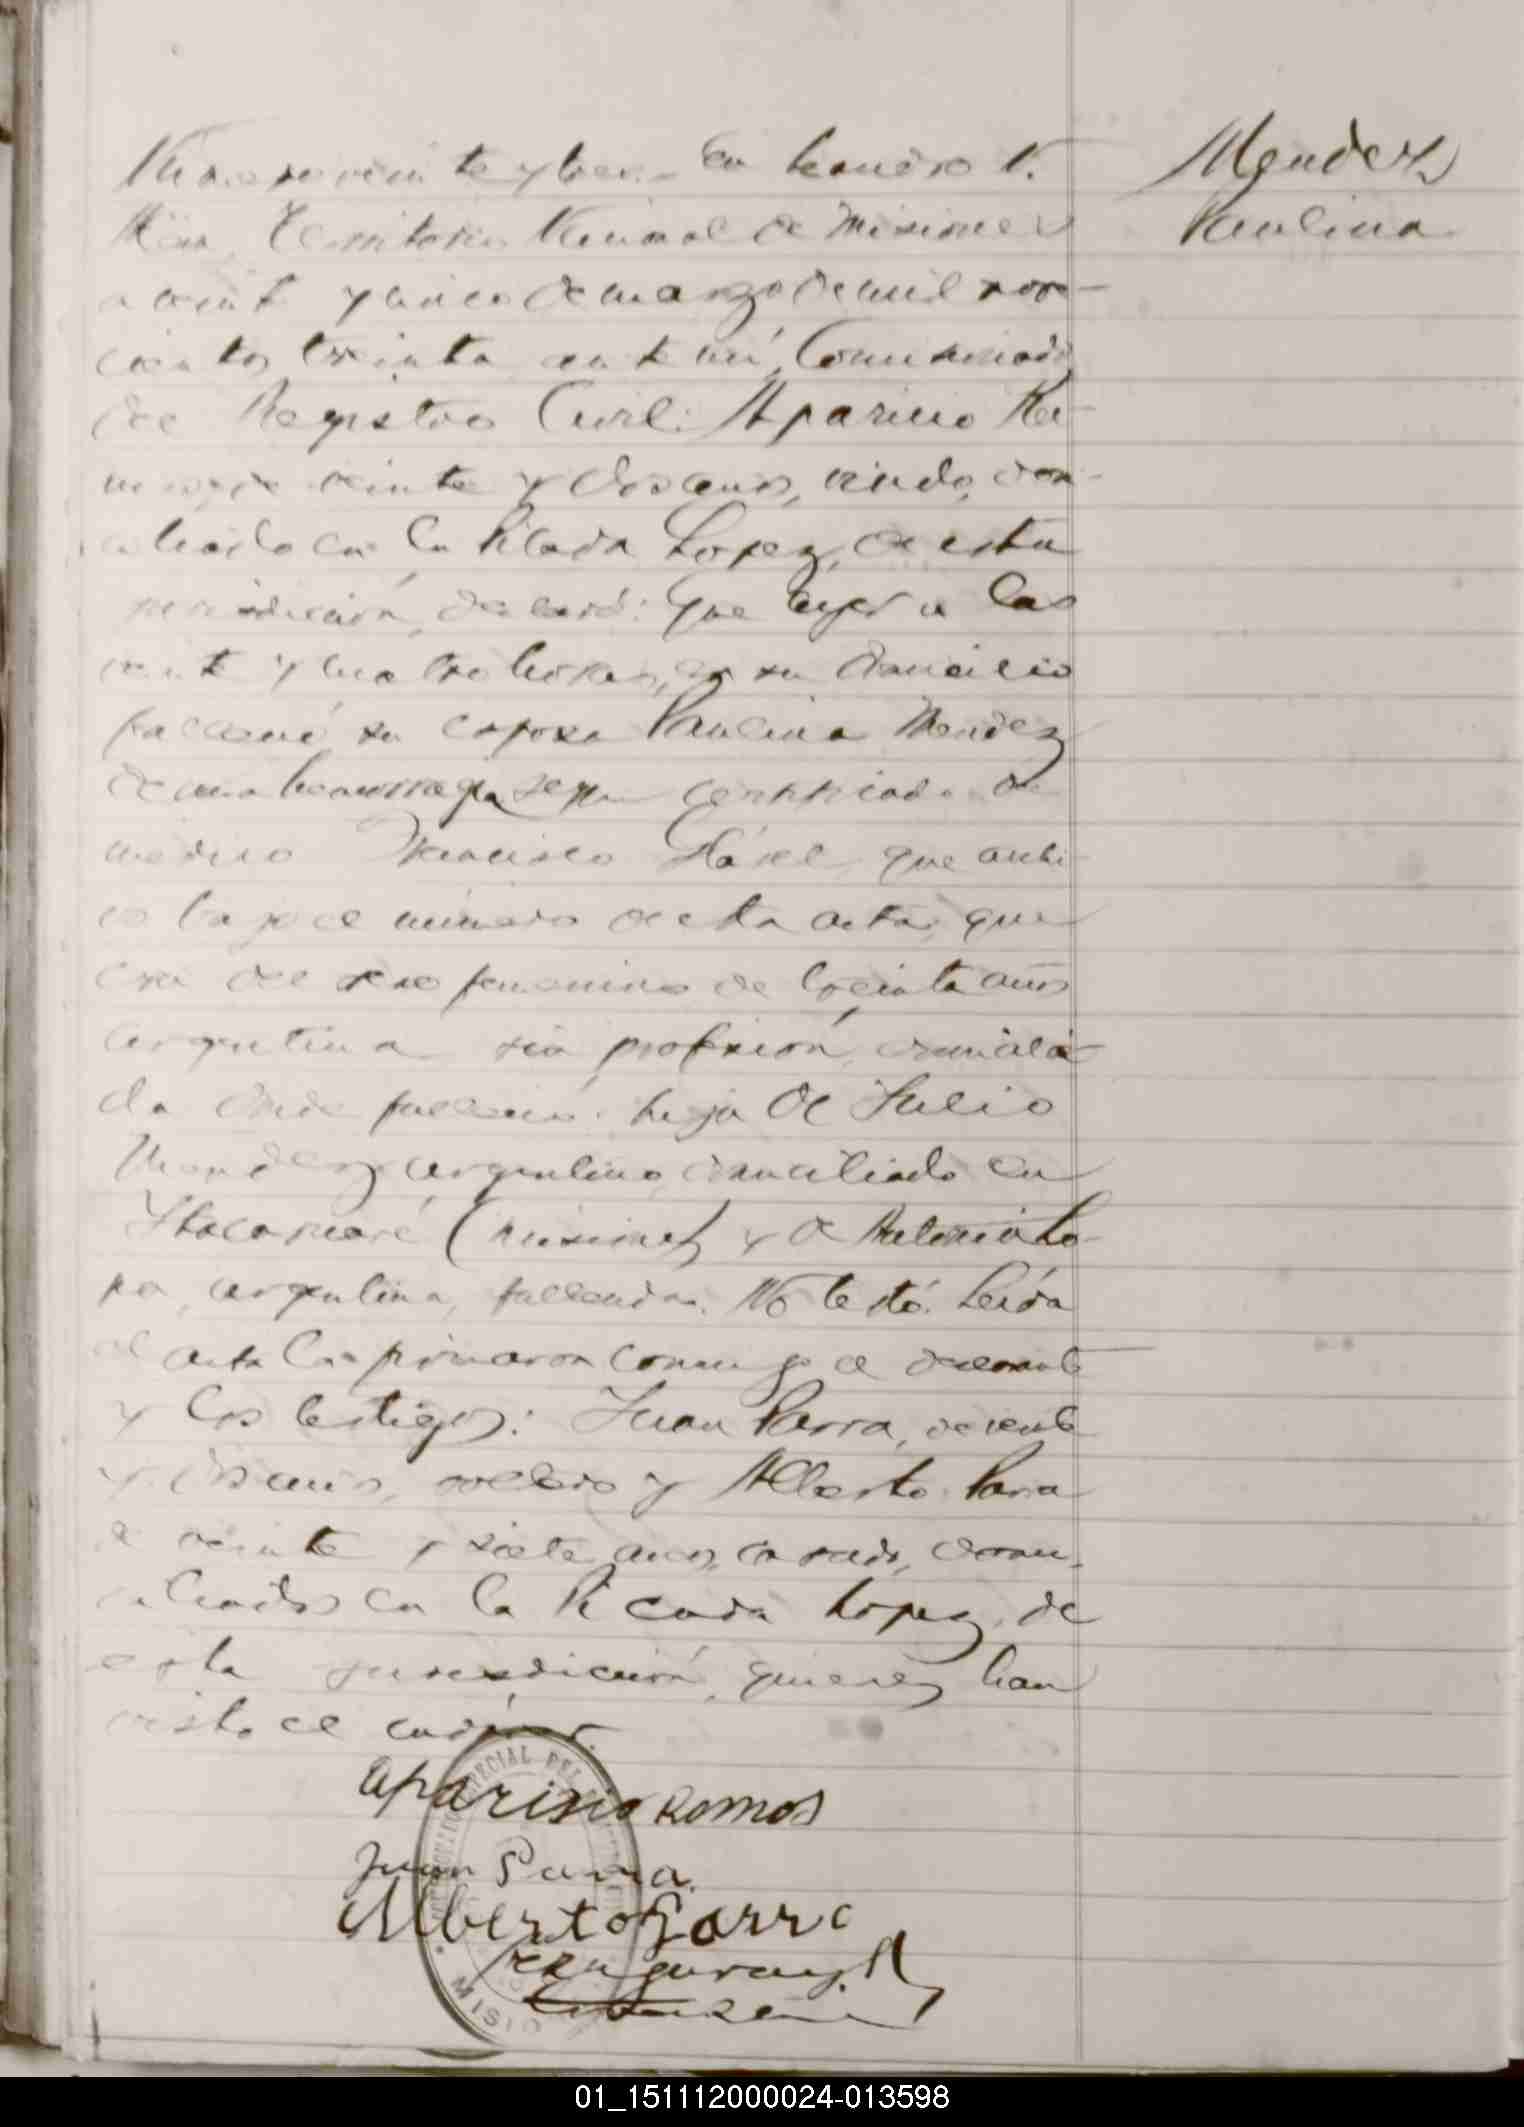 Numero veinte y tres.- En Leandro N.
Alem, Territorio Nacional de Misiones
a veinte y cinco de marzo de mil nove-
cientos treinta ante mí, Comisionado
del Registro Civil: Aparicio Ra-
mos, de veinte y dos años, viudo, domi-
ciliado en la Picada Lopez, de esta
jurisdicción, declaró: Que ayer a las
veinte y cuatro horas, en su domicilio
falleció su esposa Paulina Mendez
de una hemorragia segun certificado del
médico Francisco que archi-
vo bajo el número de esta acta; que
era del sexo femenino de treinta años
argentina sin profesión, domicilia-
da donde falleció: hija de Julio
Mendez argentino domiciliado en
Itacaruaré (Misiones) y de Antonia Lo-
pez, argentina, fallecida. No testó. Leída
el acta la firmaron conmigo el declarante
y los testigos: Juan Parra, de veinte
y dos años, soltero y Alberto Parra
de veinte y siete años, casado, domi-
ciliados en la Picada Lopez, de
esta jurisdicción, quienes han
visto el cadáver.
Mendez
Paulina
Aparisio Ramos
Juan Parra.
Alberto Parra
ESPECIAL DEL
MISIO
01_151112000024-013598